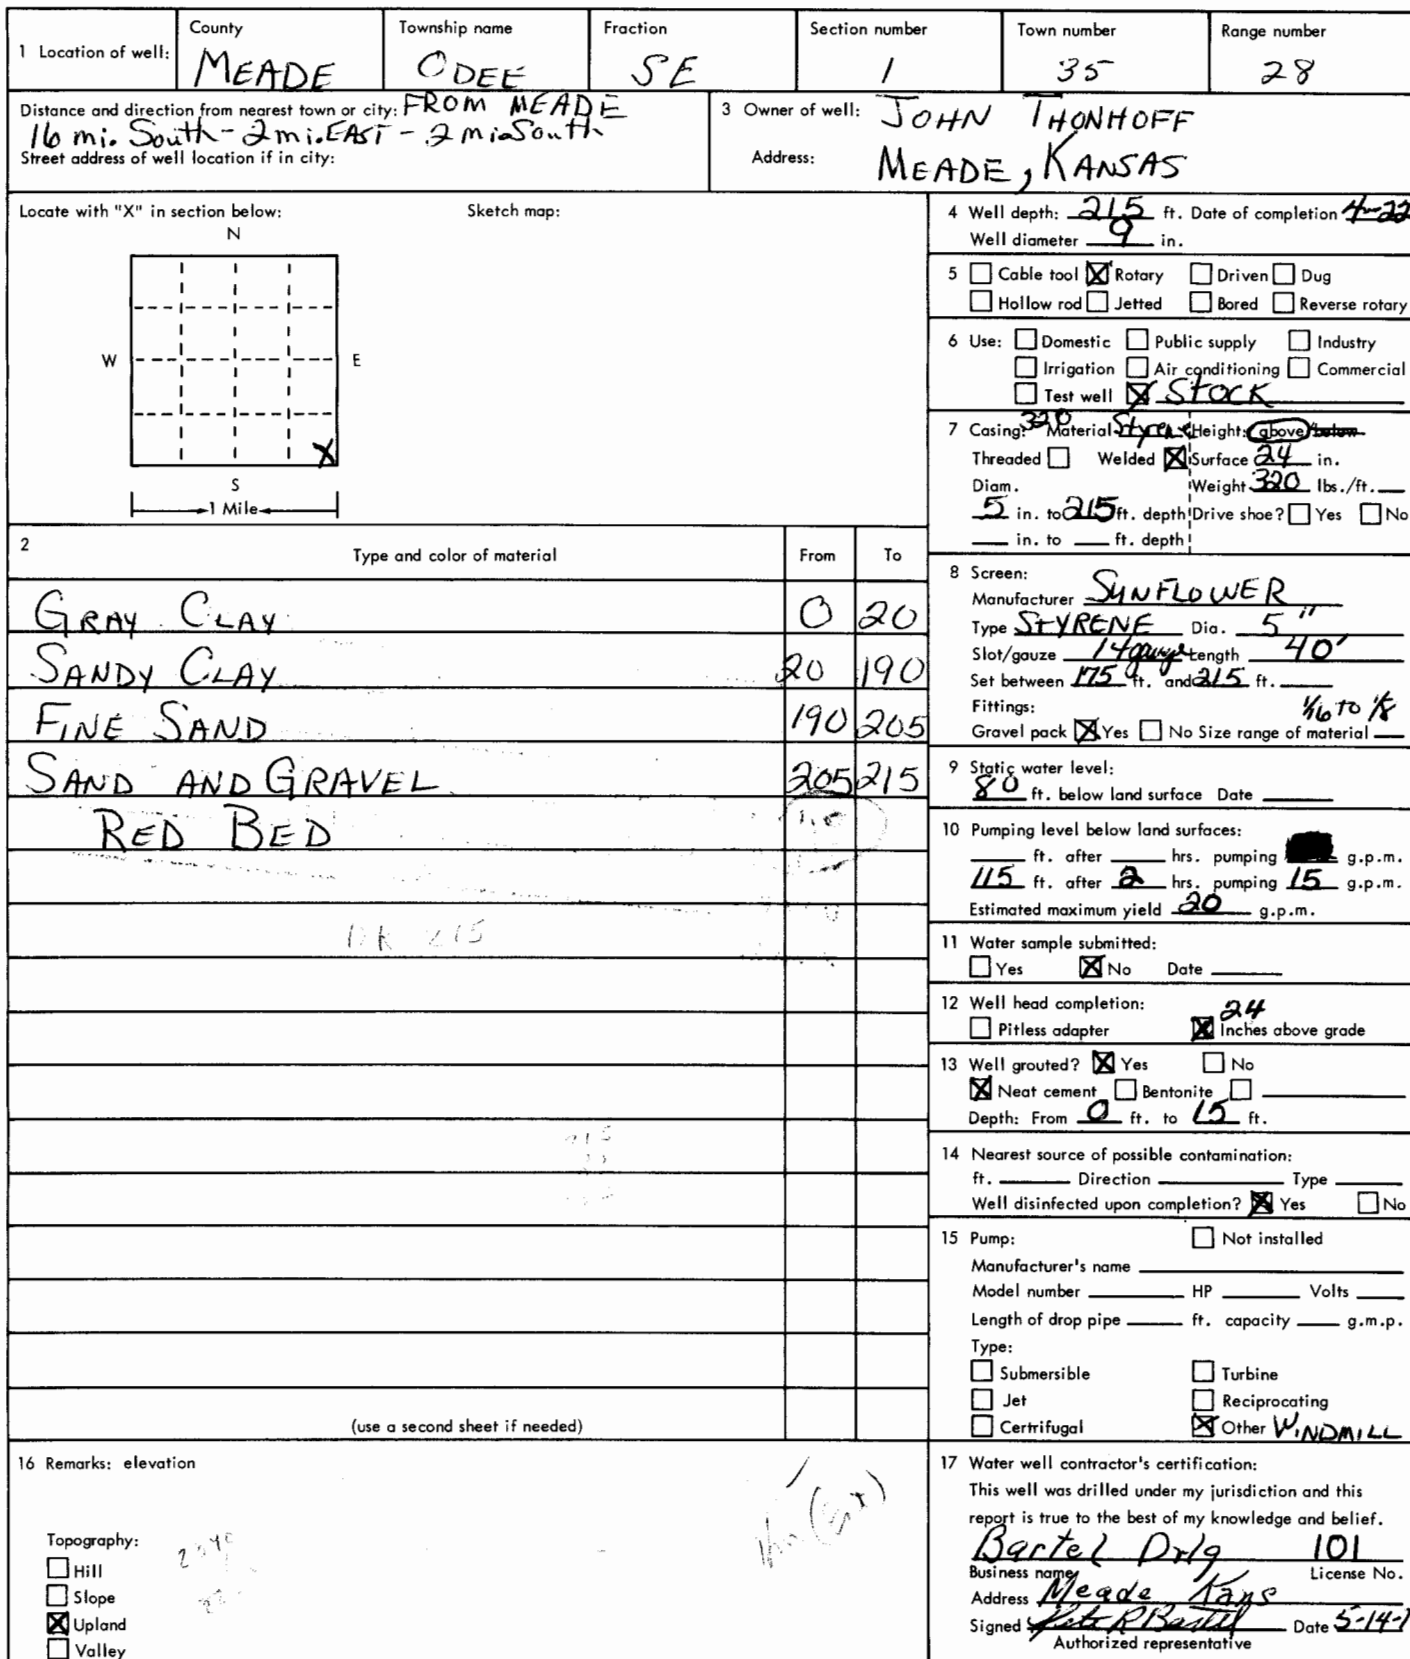 1 Location of well: County MEADE Township name ODEE Fraction SE Section number 1 Town number 35 Range number 28
Distance and direction from nearest town or city: FROM MEADE
16 mi. South - 2 mi. EAST - 2 mi. South
Street address of well location if in city:
3 Owner of well: JOHN THONHOFF
Address: MEADE, KANSAS
Locate with "X" in section below: Sketch map:
N
W E
X
S
1 Mile
2 Type and color of material From To
GRAY CLAY 0 20
SANDY CLAY 20 190
FINE SAND 190 205
SAND AND GRAVEL 205 215
RED BED
215
(use a second sheet if needed)
4 Well depth: 215 ft. Date of completion 4-22
Well diameter 9 in.
5 Cable tool X Rotary Driven Dug
Hollow rod Jetted Bored Reverse rotary
6 Use: Domestic Public supply Industry
Irrigation Air conditioning Commercial
Test well X STOCK
7 Casing: 320 Material Styrene Height: above/below
Threaded Welded X Surface 24 in.
Diam. Weight 320 lbs./ft.
5 in. to 215 ft. depth Drive shoe? Yes No
in. to ft. depth
8 Screen:
Manufacturer SUNFLOWER
Type STYRENE Dia. 5"
Slot/gauze 14 gauge Length 40'
Set between 175 ft. and 215 ft.
Fittings: 1/16 to 1/8
Gravel pack X Yes No Size range of material
9 Static water level:
80 ft. below land surface Date
10 Pumping level below land surfaces:
ft. after hrs. pumping g.p.m.
115 ft. after 2 hrs. pumping 15 g.p.m.
Estimated maximum yield 20 g.p.m.
11 Water sample submitted:
Yes X No Date
12 Well head completion: 24
Pitless adapter X Inches above grade
13 Well grouted? X Yes No
X Neat cement Bentonite
Depth: From 0 ft. to 15 ft.
14 Nearest source of possible contamination:
ft. Direction Type
Well disinfected upon completion? X Yes No
15 Pump: Not installed
Manufacturer's name
Model number HP Volts
Length of drop pipe ft. capacity g.m.p.
Type:
Submersible Turbine
Jet Reciprocating
Certrifugal X Other WINDMILL
16 Remarks: elevation
Topography:
Hill
Slope
X Upland
Valley
17 Water well contractor's certification:
This well was drilled under my jurisdiction and this
report is true to the best of my knowledge and belief.
Bartel Drlg 101
Business name License No.
Address Meade Kans
Signed Pete R Bartel Date 5-14-
Authorized representative